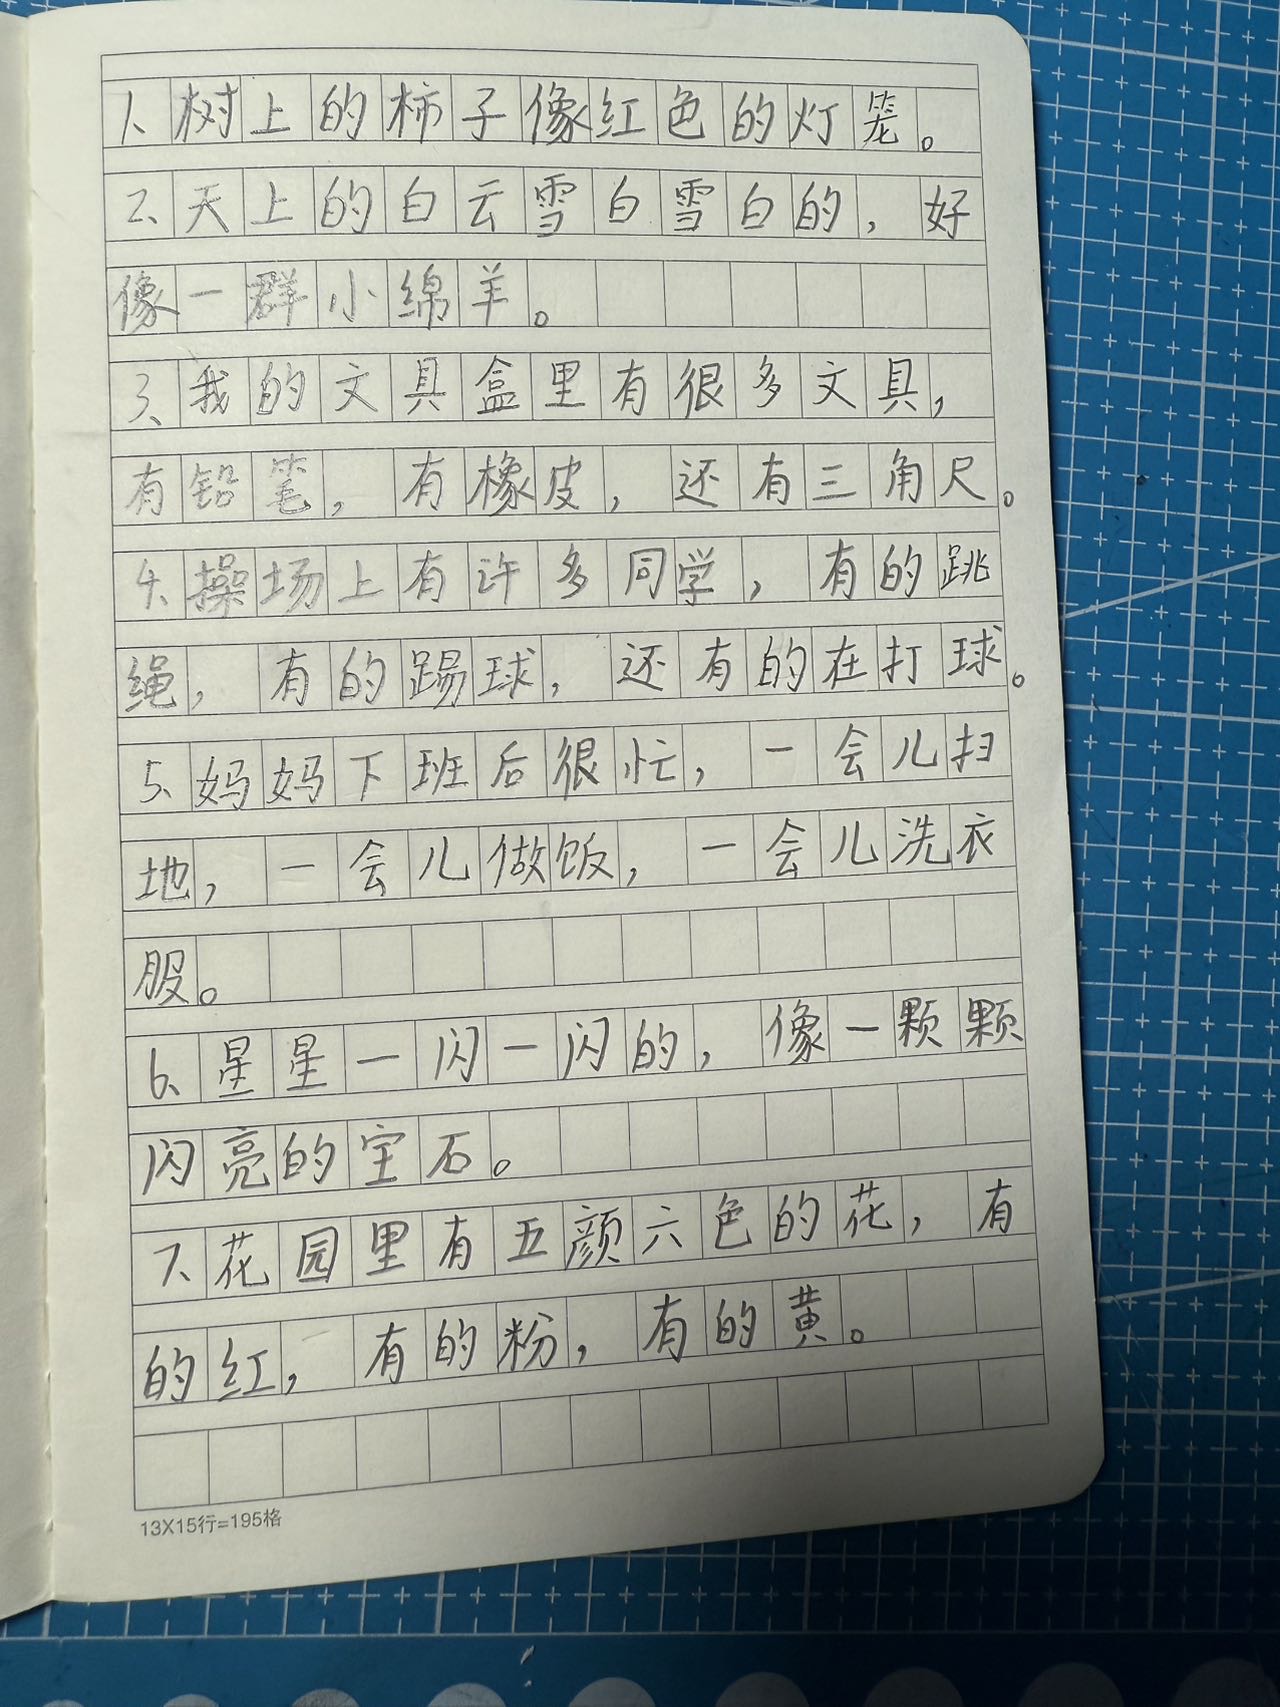 1、树上的柿子像红色的灯笼。
2、天上的白云雪白雪白的，好
像一群小绵羊。
3、我的文具盒里有很多文具，
有铅笔，有橡皮，还有三角尺。
4、操场上有许多同学，有的跳
绳，有的踢球，还有的在打球。
5、妈妈下班后很忙，一会儿扫
地，一会儿做饭，一会儿洗衣
服。
6、星星一闪一闪的，像一颗颗
闪亮的宝石。
7、花园里有五颜六色的花，有
的红，有的粉，有的黄。
13X15行=195格